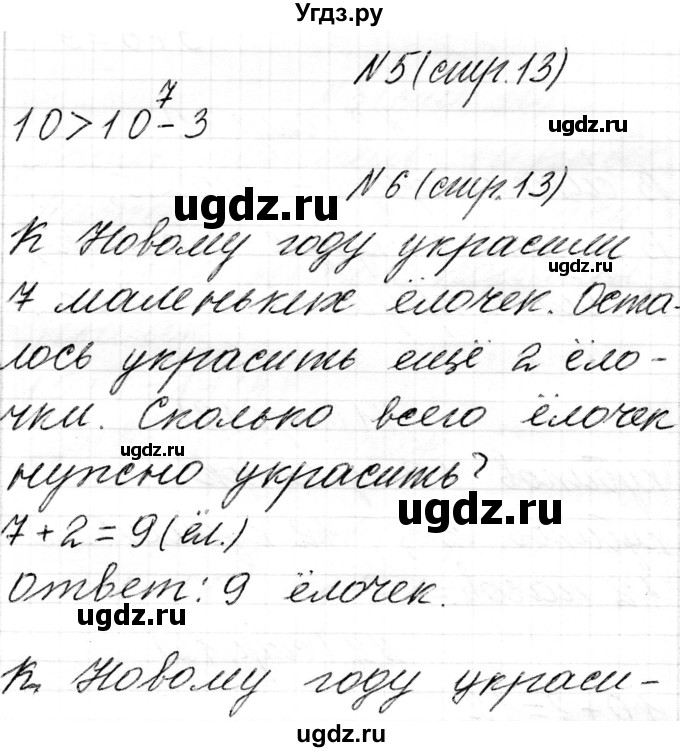 Угдз.ру
№5 (стр. 13)
7
10 > 10 - 3
ugdz.ru
№6 (стр. 13)
ugdz.ru
К Новому году украсили
ugdz.ru
7 маленьких ёлочек. Оста-
лось украсить ещё 2 ёло-
чки. Сколько всего ёлочек
ugdz.ru
нужно украсить?
ugdz.ru
7 + 2 = 9 (ёл.)
Ответ: 9 ёлочек.
ugdz.ru
К Новому году украси-
ugdz.ru